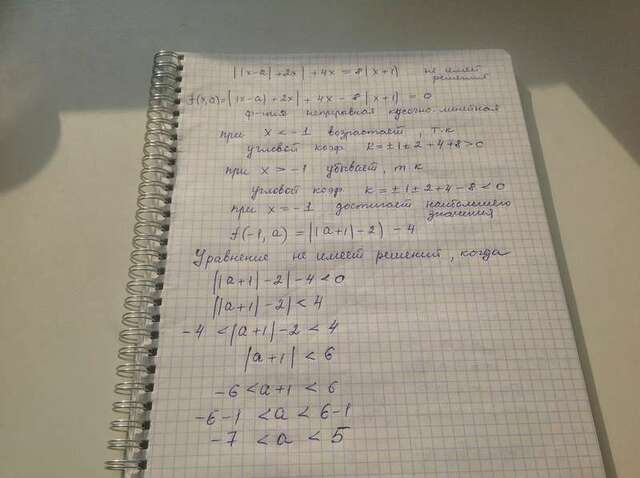 ||x-a|+2x|+4x=8|x+1| не имеет решения
f(x,a)=||x-a|+2x|+4x-8|x+1|=0
ф-ция непрерывная кусочно-линейная
при x<-1 возрастает, т.к
угловой коэф k=±1±2+4+8>0
при x>-1 убывает, т к
угловой коэф k=±1±2+4-8<0
при x=-1 достигает наибольшего значения
f(-1,a)=||a+1|-2|-4
Уравнение не имеет решений, когда
||a+1|-2|-4<0
||a+1|-2|<4
-4<|a+1|-2<4
|a+1|<6
-6<a+1<6
-6-1<a<6-1
-7<a<5